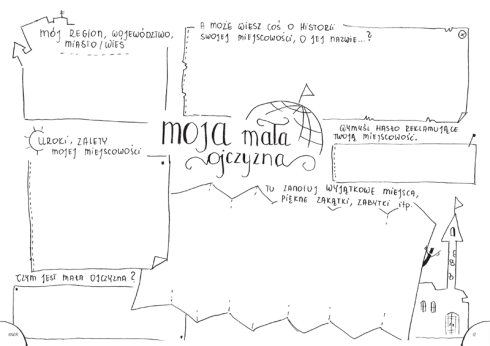 MÓJ REGION, WOJEWÓDZTWO,
MIASTO/WIEŚ
A MOŻE WIESZ COŚ O HISTORII
SWOJEJ MIEJSCOWOŚCI, O JEJ NAZWIE...?
UROKI, ZALETY
MOJEJ MIEJSCOWOŚCI
moja mała
ojczyzna
WYMYŚL HASŁO REKLAMUJĄCE
TWOJĄ MIEJSCOWOŚĆ.
TU ZANOTUJ WYJĄTKOWE MIEJSCA,
PIĘKNE ZAKĄTKI, ZABYTKI itp.
CZYM JEST MAŁA OJCZYZNA?